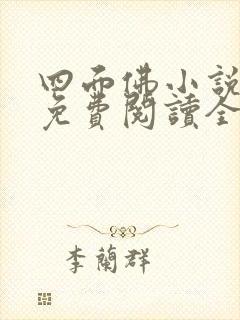 四面佛小說
免費閱讀全
李蘭群